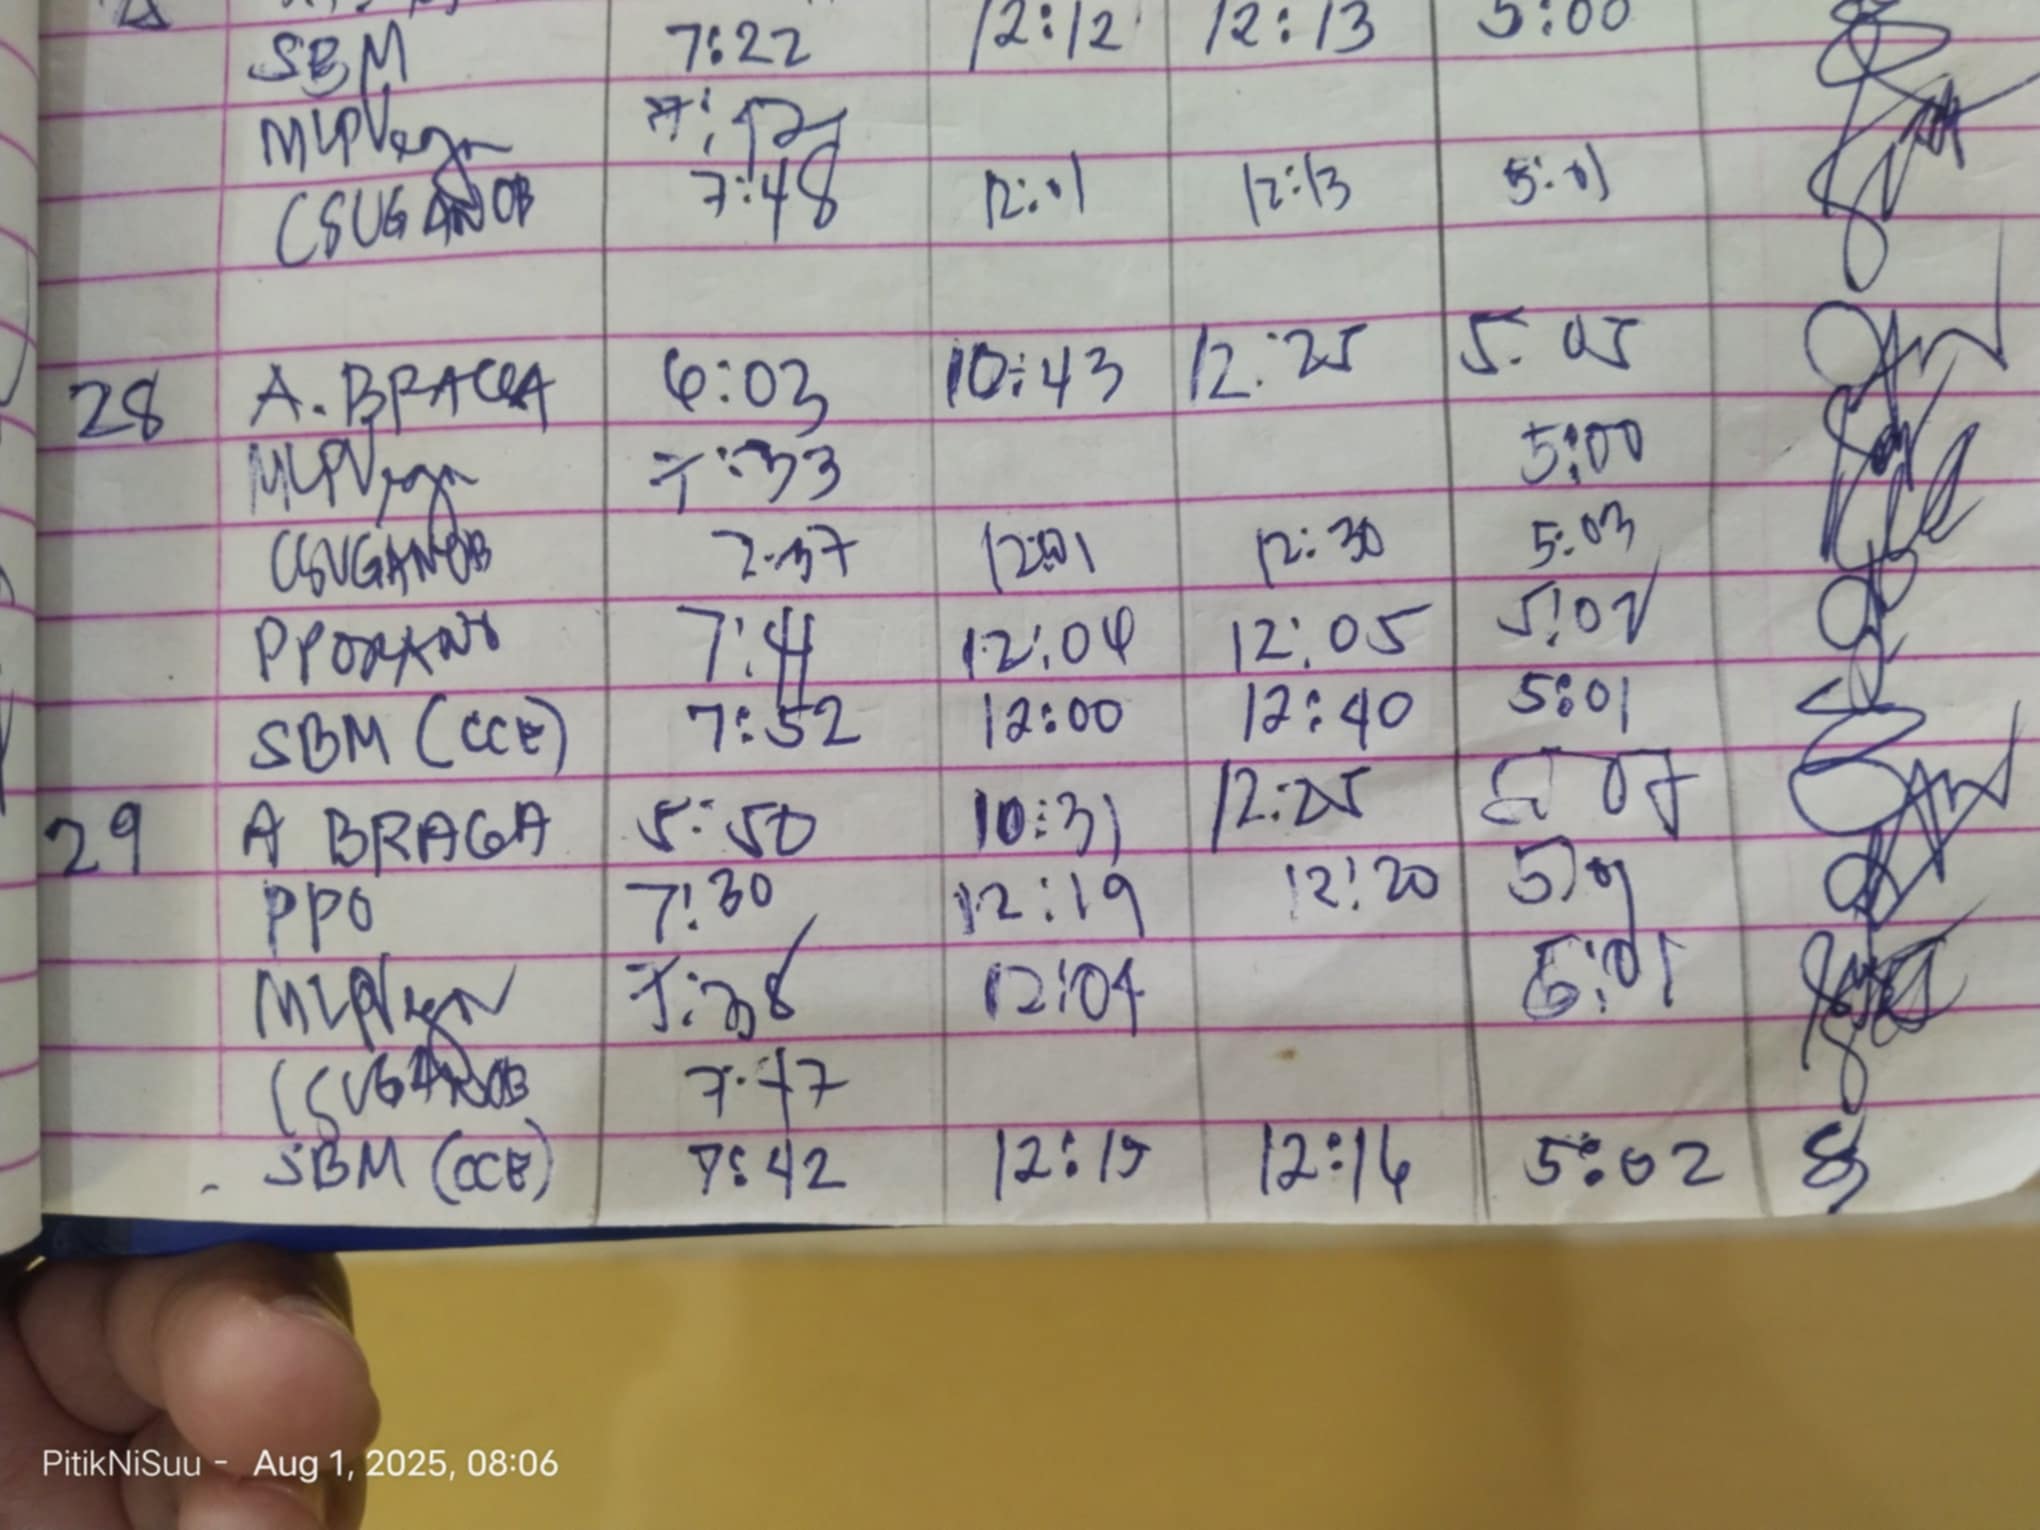 SBM 7:22 12:12 12:13 5:00
MLPVega
CSUGANOB 7:48 12:01 12:13 5:01
28 A. BRAGA 6:03 10:43 12:25 5:05
MLPVega 7:33 5:00
CSUGANOB 7:37 12:01 12:30 5:03
7:41 12:04 12:05 5:02
SBM (CCE) 7:52 12:00 12:40 5:01
29 A BRAGA 5:50 10:31 12:25
PPO 7:30 12:19 12:20
MLPVega 7:38 12:04 5:01
CSUGANOB 7:47
SBM (CCE) 7:42 12:15 12:16 5:02
PitikNiSuu - Aug 1, 2025, 08:06